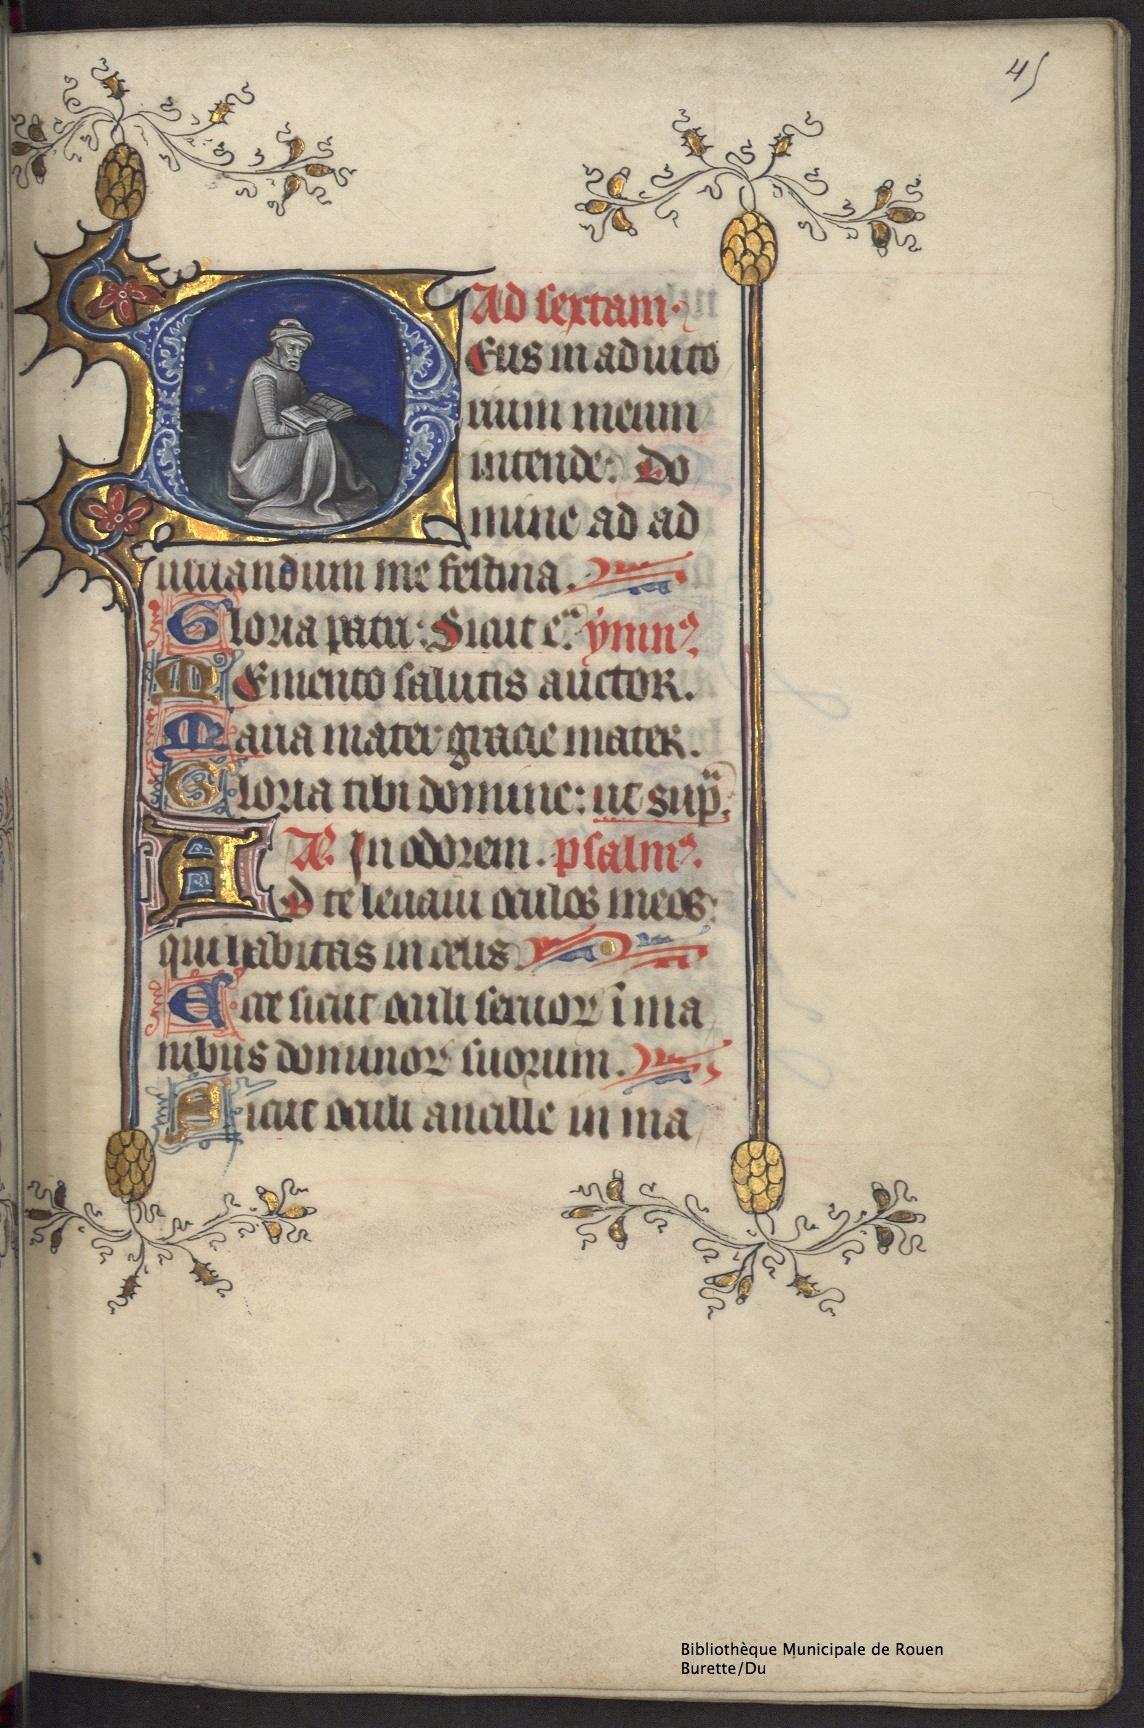 45
Ad sextam.
Deus in adiuto
rium meum
intende: Do
mine ad ad
iuuandum me festina.
Gloria patri: Sicut e. ymn9.
Memento salutis auctor.
Maria mater gracie mater.
Gloria tibi domine: ut sup.
A. In odorem. psalm9.
Ad te leuaui oculos meos:
qui habitas in celis
Ecce sicut oculi seruorꝝ ī ma
nibus dominorꝝ suorum.
Sicut oculi ancille in ma
Bibliothèque Municipale de Rouen
Burette/Du